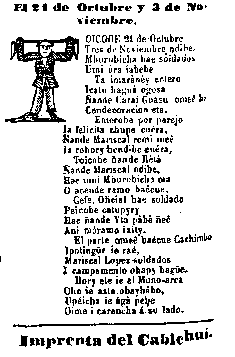 El 21 de Octubre y 3 de No-
viembre.
OICOUE 21 de Octubre
Tres de Noviembre ndibe.
Mburubicha hae soldados
Etni úra iabebe
Ta imaràney entero
Icatu haguà ogosa
Ñande Carai Guasu omeè
Condecoracion eta.
Enteroba por parejo
Ia felicita chupe cuéra,
Ñande Mariscal remi meé
Ia rohory hend-be cuéra,
Toicobe ñande Retà
Ñande Mariscal ndibe,
Hae umi Mburubicha eta
O acende ramo baècue,
Gefe, Oficial hae soldado
Peicobe catupyry
Hae ñande Ytà pàbê ñeé
Ani móramo iaity.
El parte omeè baècue Cachimbo
Ipotingúr ie raé,
Mariscal Lopez soldados
I campamento ohapy hagüe.
Hory ete ie el Mono-area
Oho ie asta obayhábo,
Upéicha ie àgà pehe
Oime i carencha à su lado.
Imprenta del Cabichuí.